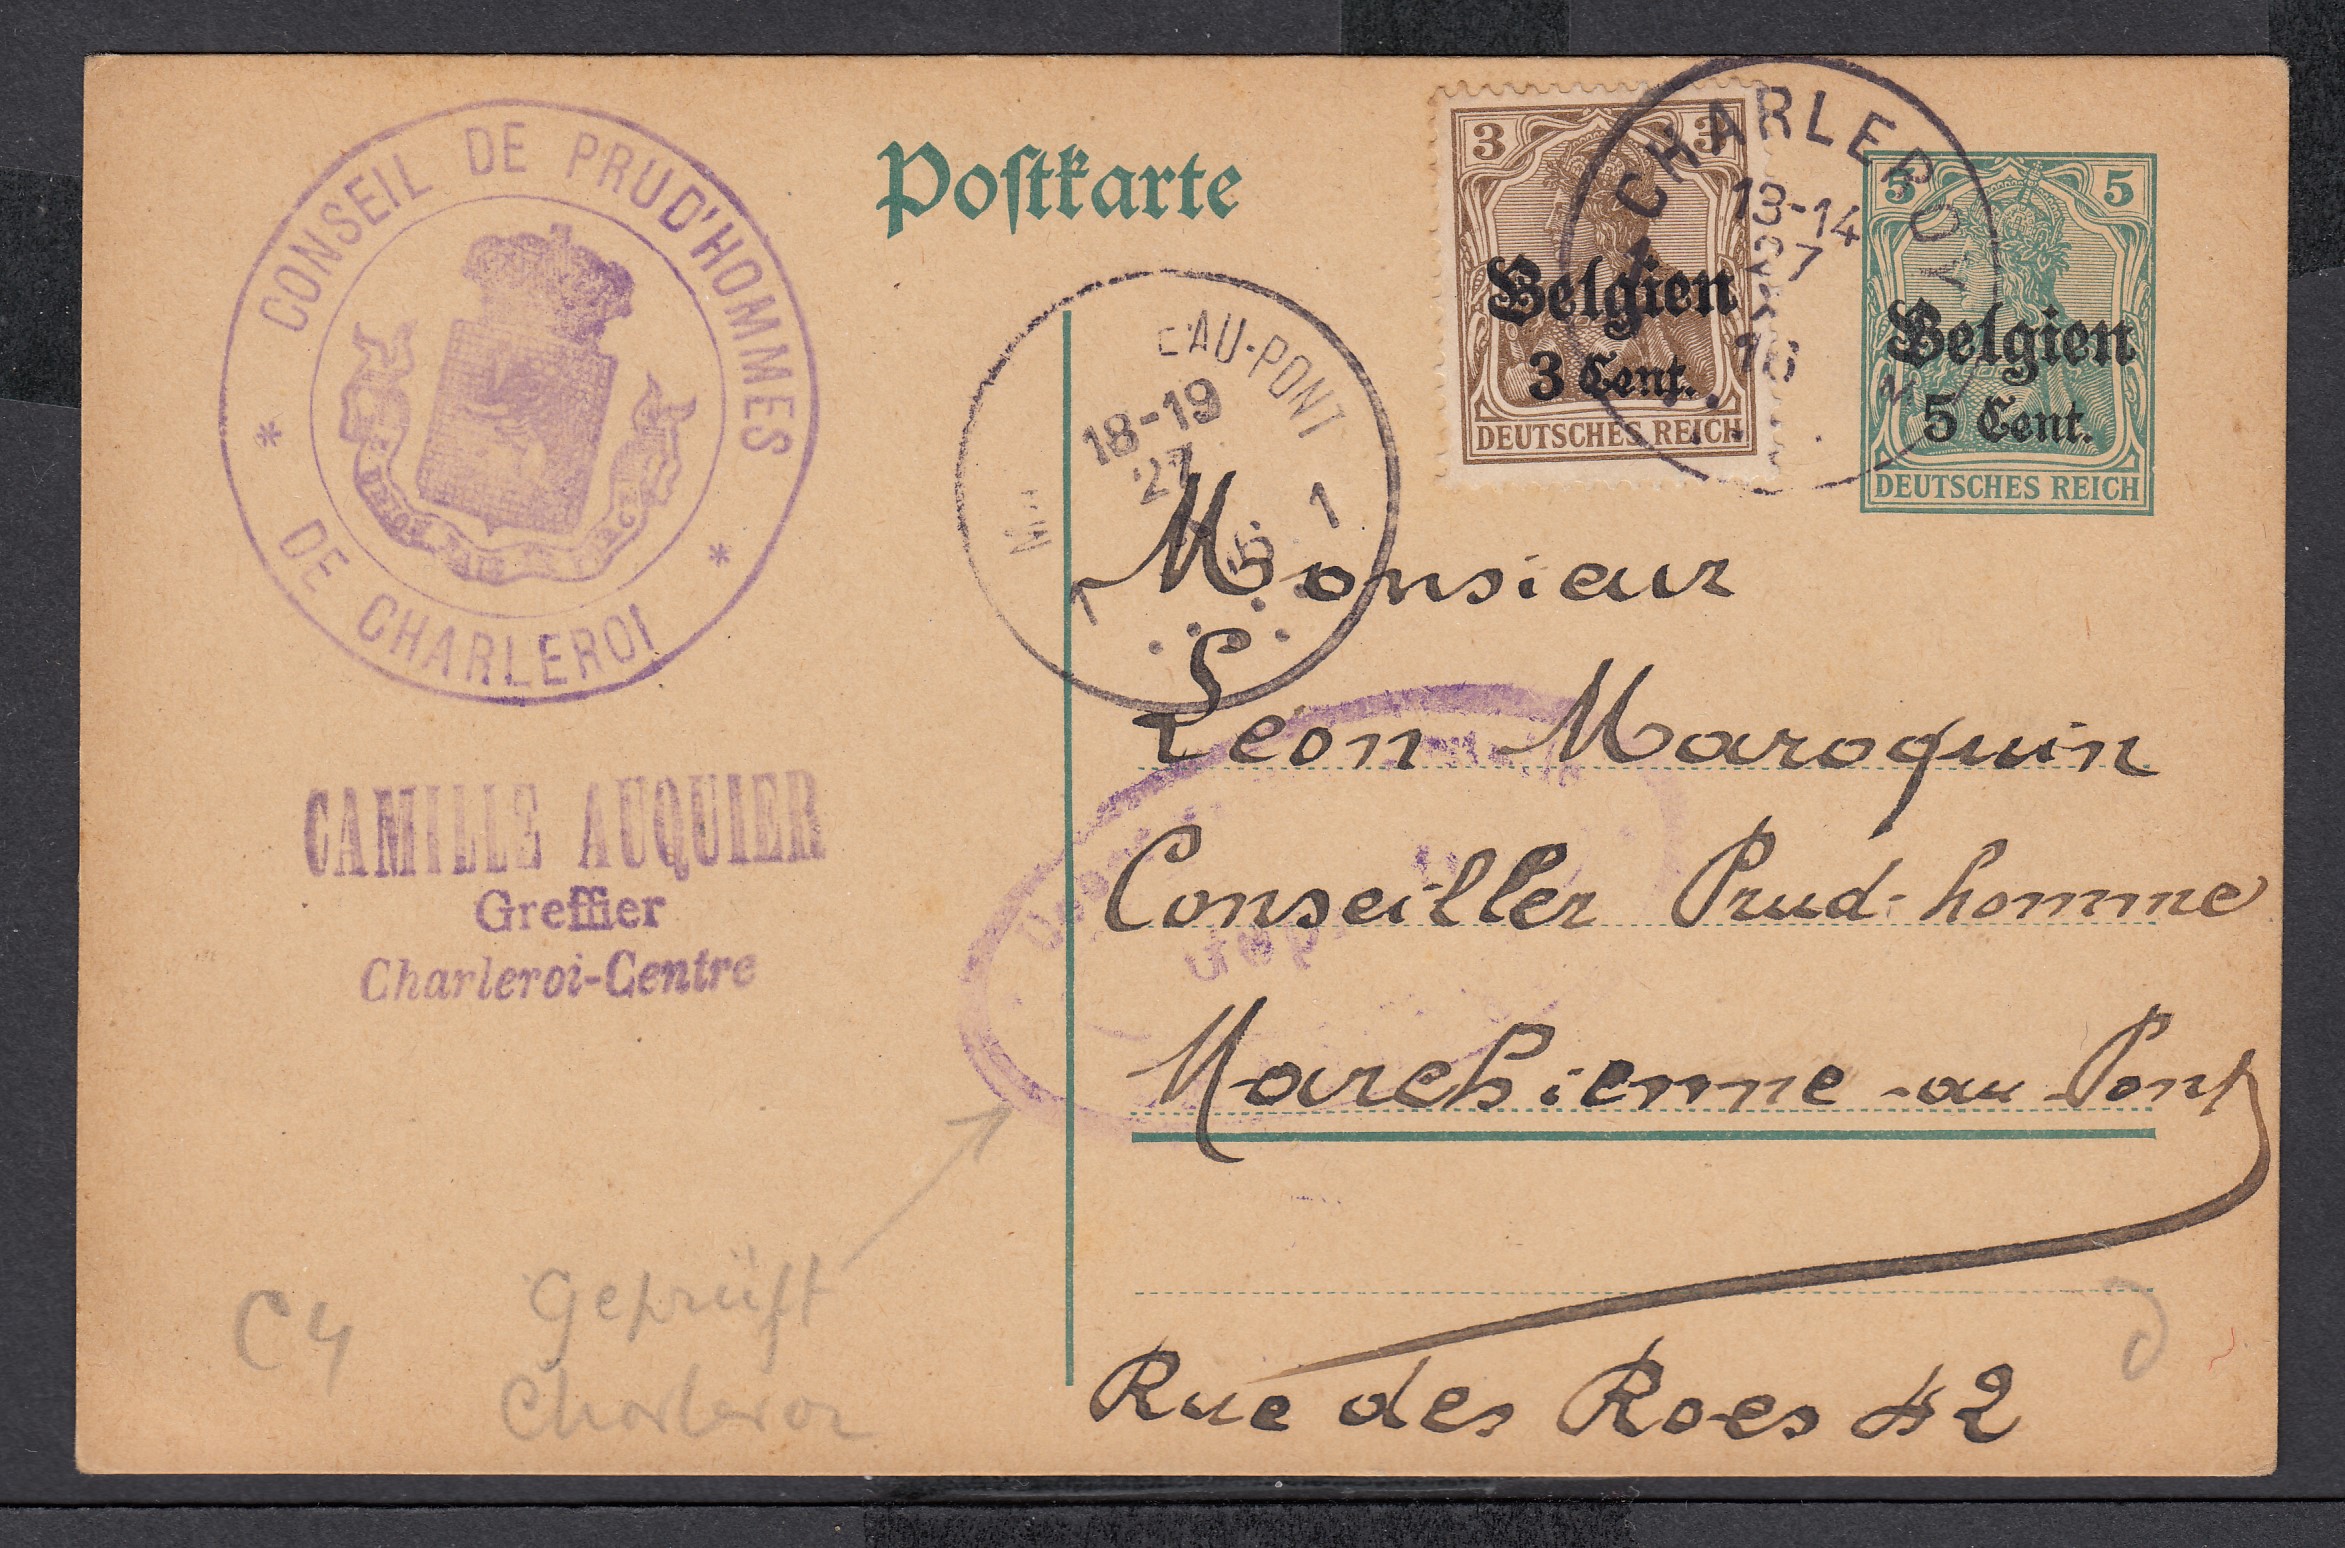 CONSEIL DE PRUD'HOMMES
* DE CHARLEROI *
Postkarte
3 3
Belgien
3 Cent.
DEUTSCHES REICH
CHARLEROI
13-14
5 5
Belgien
5 Cent.
DEUTSCHES REICH
EAU-PONT
18-19
27
1 1
Monsieur
Léon Maroquin
CAMILLE AUQUIER
Greffier
Charleroi-Centre
Conseiller Prud-homme
Marchienne-au-Pont
Rue des Roes 42
C4
Geprüft
Charleroi